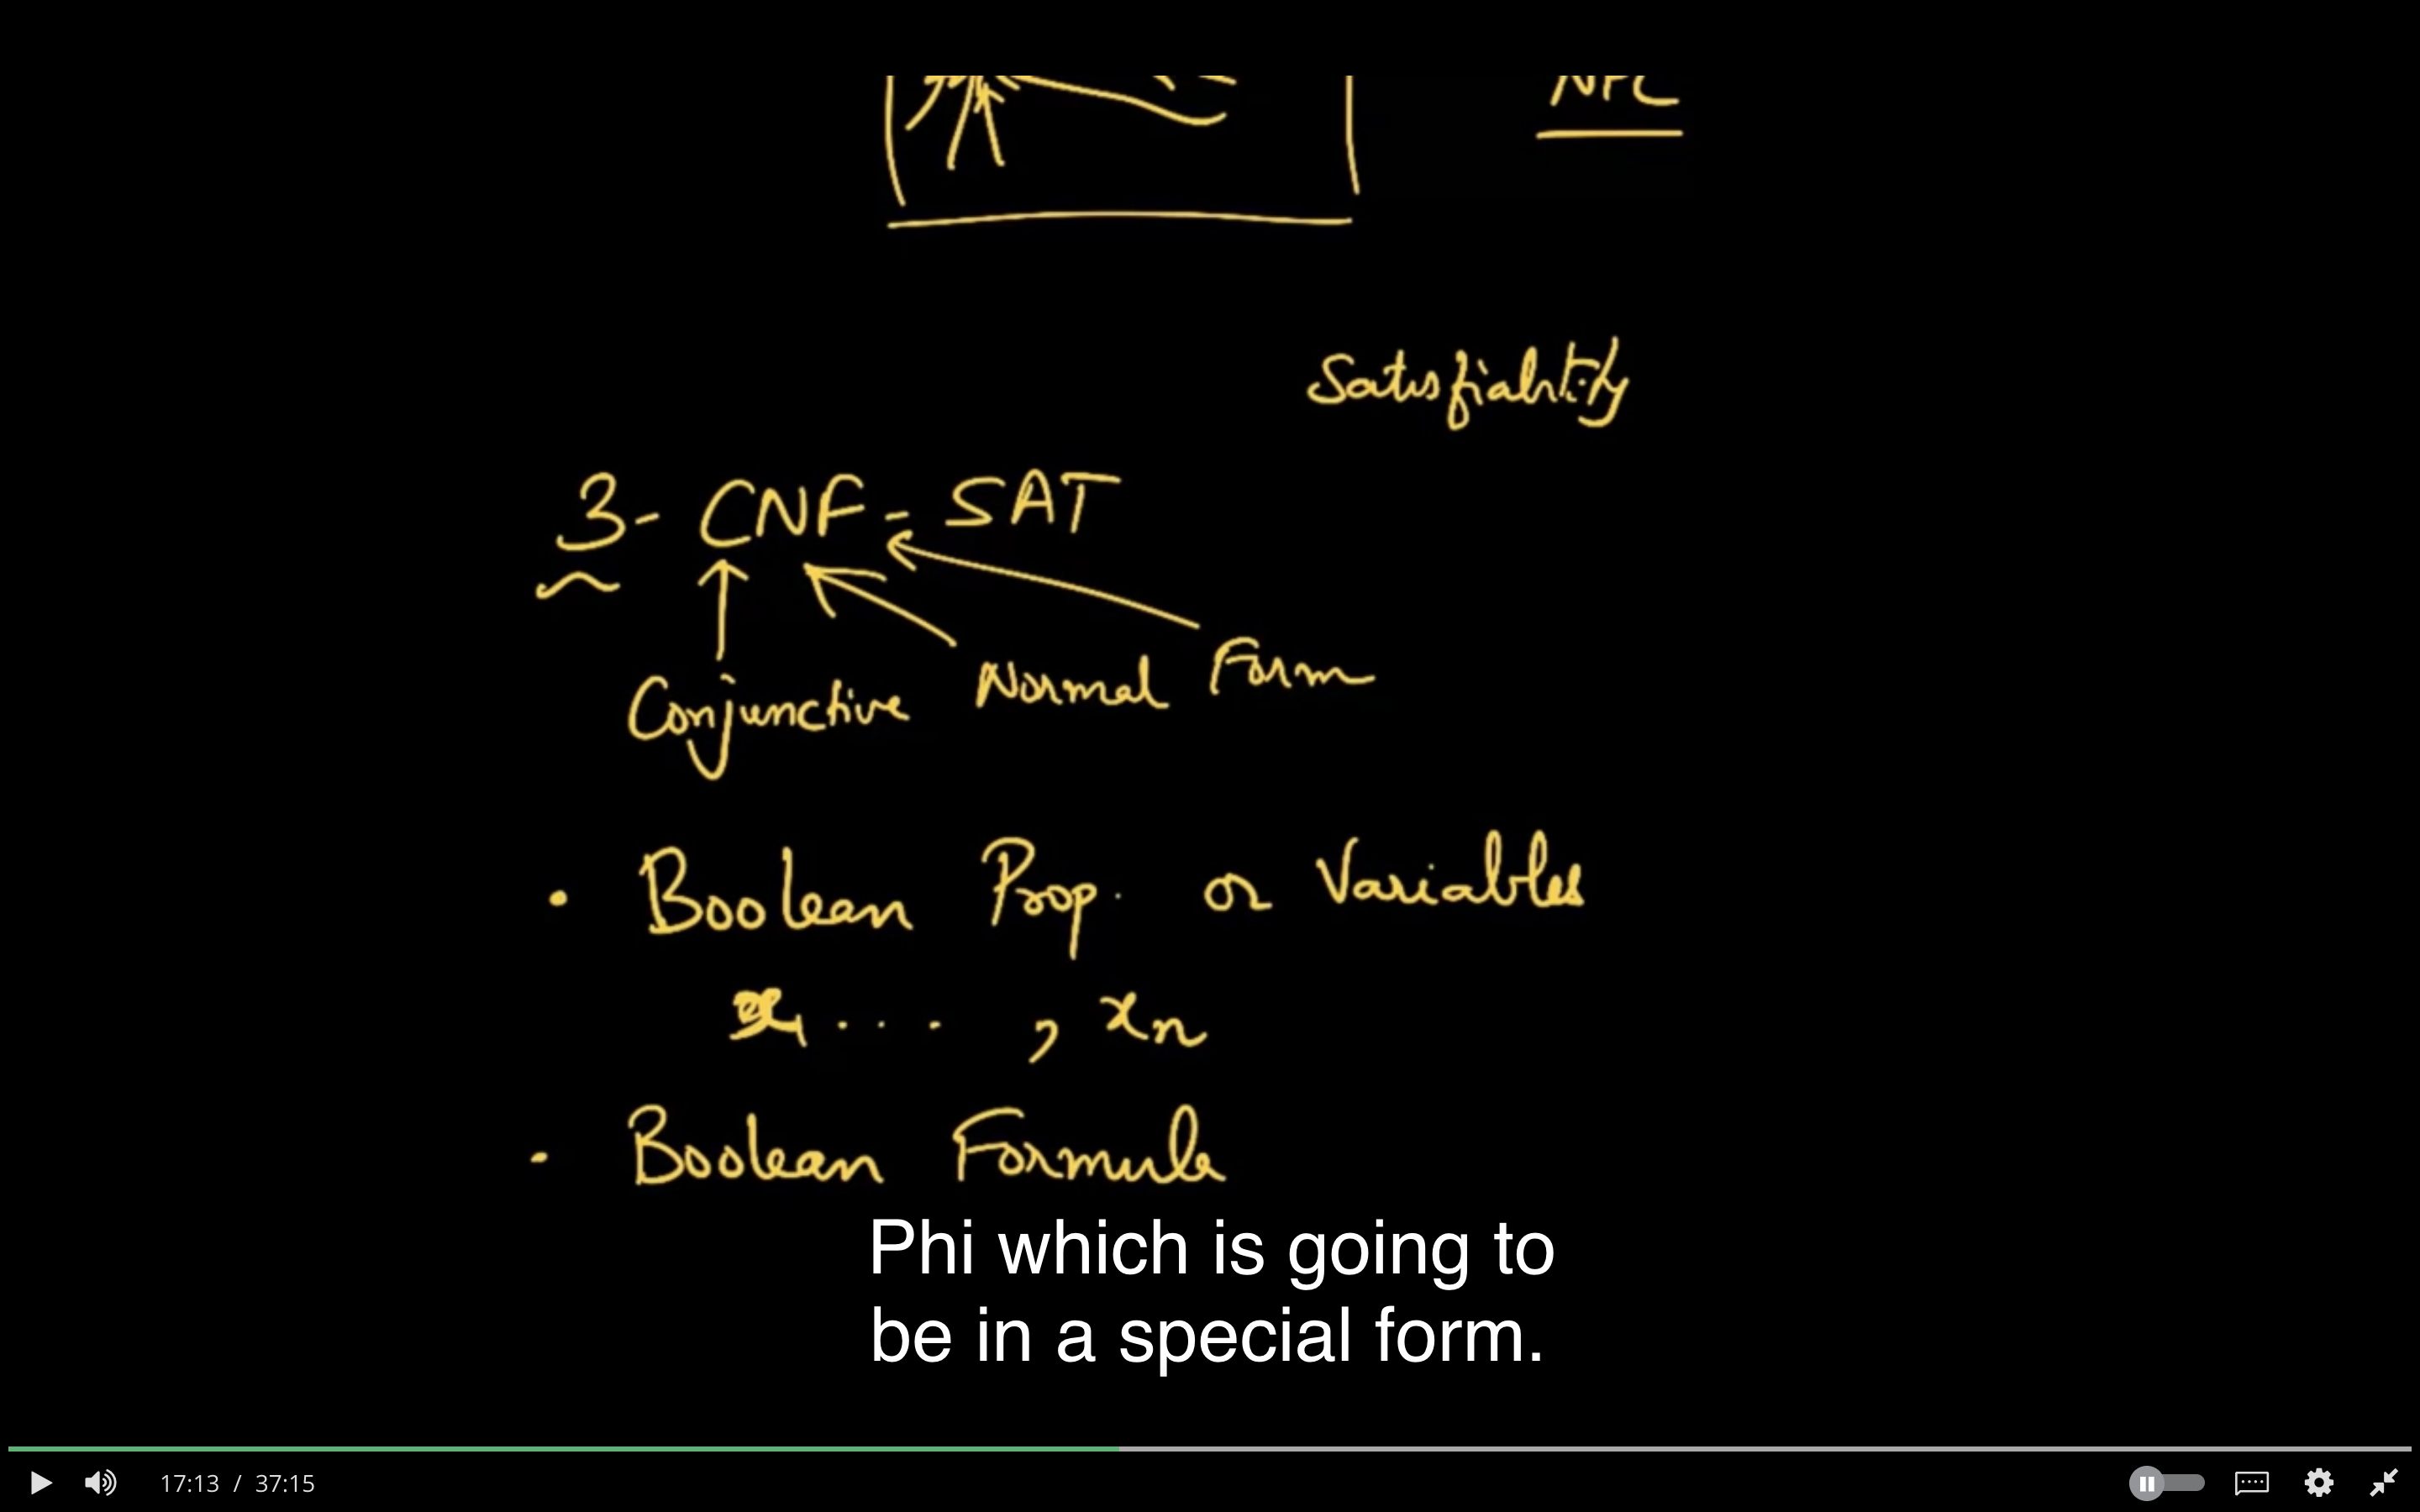 NPC
Satisfiability
3- CNF - SAT
Conjunctive Normal Form
• Boolean Prop. or Variables
x1 . . . , xn
• Boolean Formula
Phi which is going to
be in a special form.
17:13 / 37:15